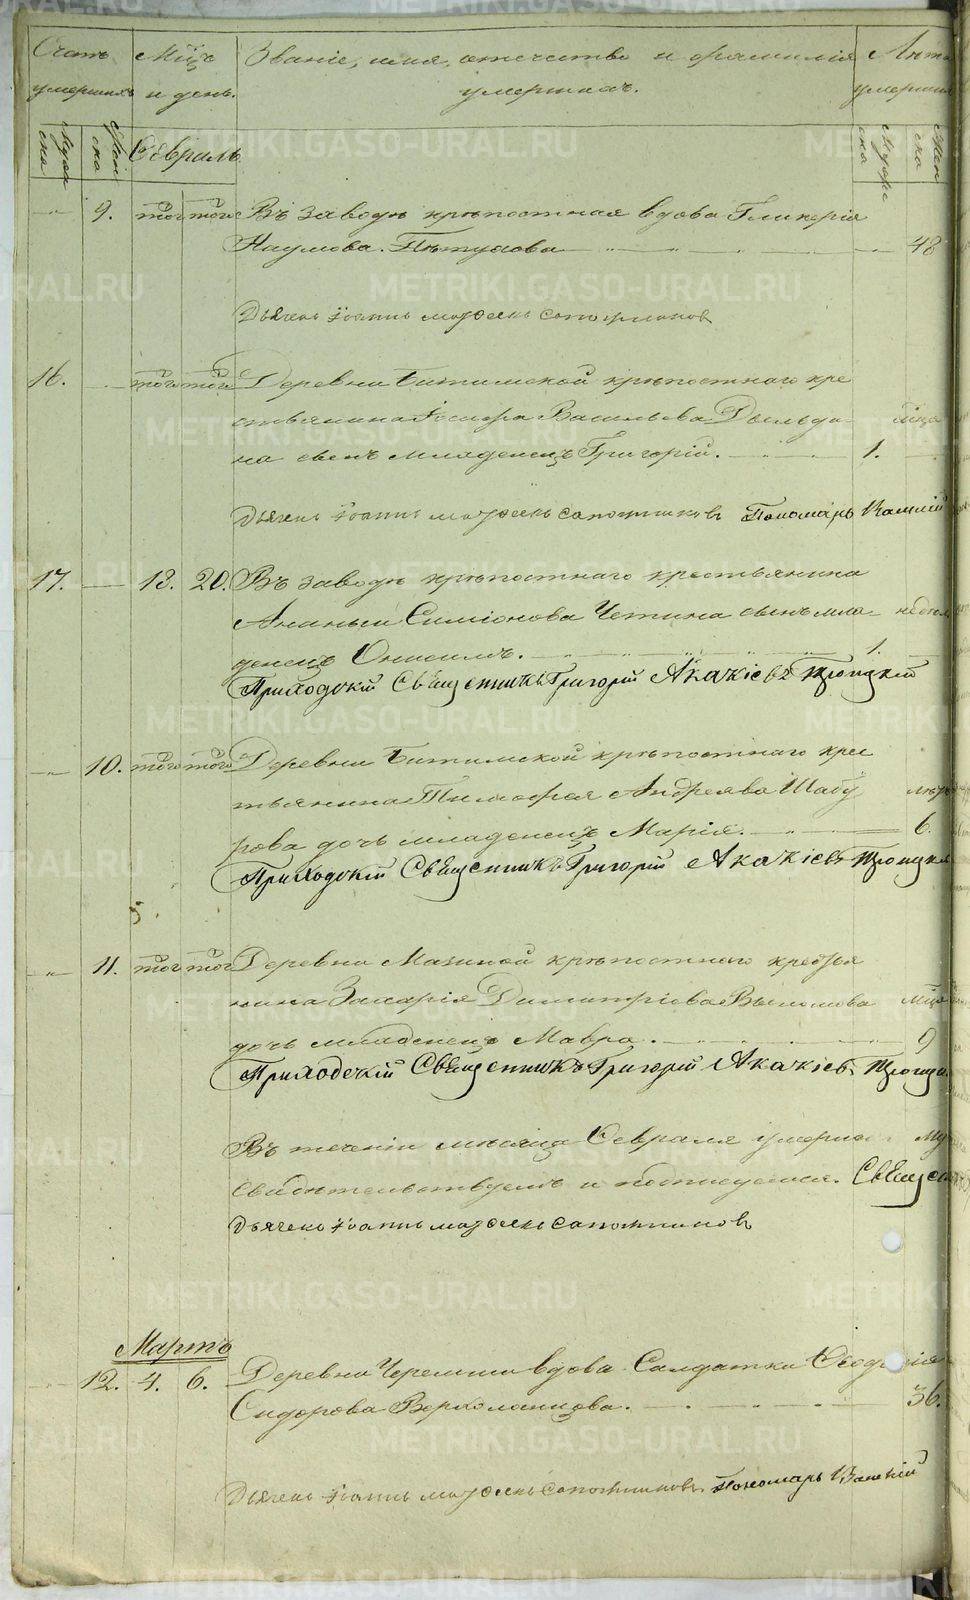 Счетъ умершихъ
Мѣсяцъ и день.
Званіе, имя, отечество и фамилія умершихъ.
Лѣта умершихъ
Мужеска
Женска
Февраль
Мужеска
Женска
9. того того Въ заводѣ крѣпостная вдова Гликерія
Наумова Пѣтухова 48
Дьячекъ Іоаннъ Сапожниковъ
16. того того Деревни Битимской крѣпостнаго кре
стьянина Іосифа Васильева Дыльди-
на сынъ младенецъ Григорій. 1.
Дьячекъ Іоаннъ Сапожниковъ Пономарь
17. 13. 20. Въ заводѣ крѣпостнаго крестьянина
Ананьи Симіонова Четина сынъ мла-
денецъ Онисимъ. 1.
Приходскій Священникъ Григорій Акакіевъ Троицкій
10. того того Деревни Битимской крѣпостнаго крес
тьянина Тимофея Андреява Шабу
рова дочь младенецъ Марія. 6.
Приходскій Священникъ Григорій Акакіевъ Троицкій
5.
11. того того Деревни Мазиной крѣпостнаго крестья
нина Захарія Димитріева
дочь младенецъ Мавра. 9
Приходскій Священникъ Григорій Акакіевъ
Въ теченіи мѣсяца Февраля
Свидѣтельствуемъ и подписуемся.
Дьячекъ Іоаннъ Сапожниковъ
Мартъ
12. 4. 6. Деревни Черемши вдова Салдатка Ѳеодосія
Сидорова 36.
Дьячекъ Іоаннъ Сапожниковъ Пономарь
METRIKI.GASO-URAL.RU